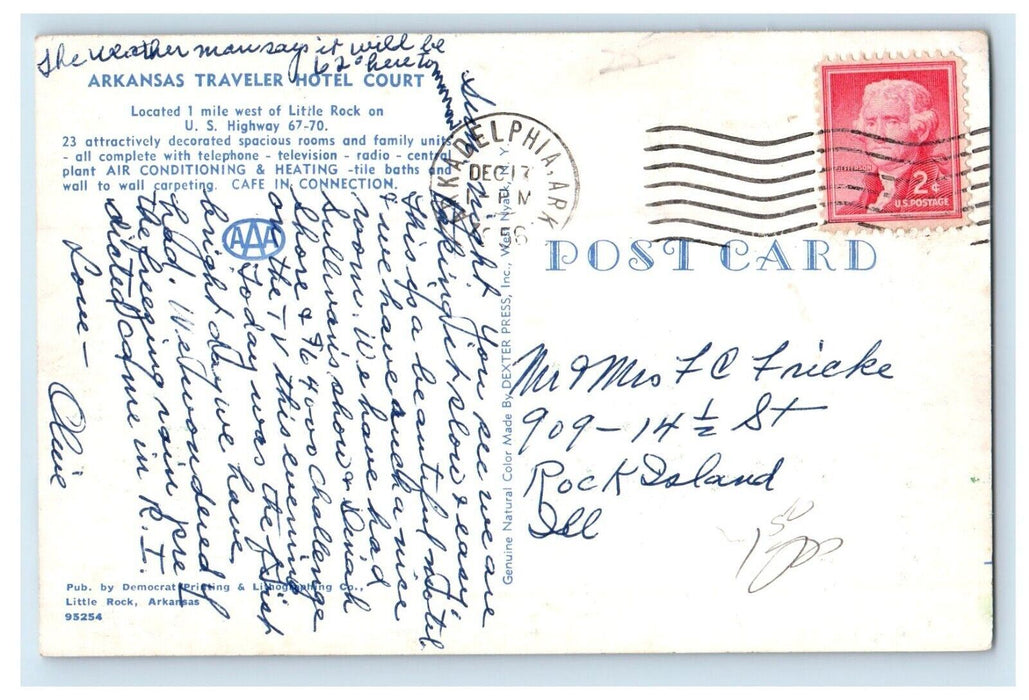 The weather man says it will be
62° here tomorrow
ARKANSAS TRAVELER HOTEL COURT
Located 1 mile west of Little Rock on
U. S. Highway 67-70.
23 attractively decorated spacious rooms and family units
- all complete with telephone - television - radio - central
plant AIR CONDITIONING & HEATING -tile baths and
wall to wall carpeting. CAFE IN CONNECTION.
AAA
Sunday night. You see we are
taking it slow & easy.
This is a beautiful motel
& we have such a nice
room. We have had
Sullivan's show & Dinah
Shore & $64000 challenge
on the TV this evening
Today was the first
bright day we have
had. We wondered if
the freezing rain pre
dicted came in R. I.
Love -
Olive
Pub. by Democrat Printing & Lithographing Co.,
Little Rock, Arkansas
95254
Genuine Natural Color Made By DEXTER PRESS, Inc., West Nyack, N. Y.
ARKADELPHIA, ARK
DEC 17
PM
JEFFERSON
2¢
U.S. POSTAGE
POST CARD
Mr & Mrs F C Fricke
909 - 14 ½ St
Rock Island
Ill